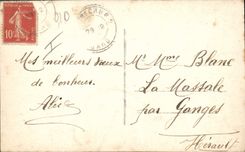 10
Mes meilleurs vœux
de bonheur.
Mr Mme Blanc
La Massale
par Ganges
Hérault